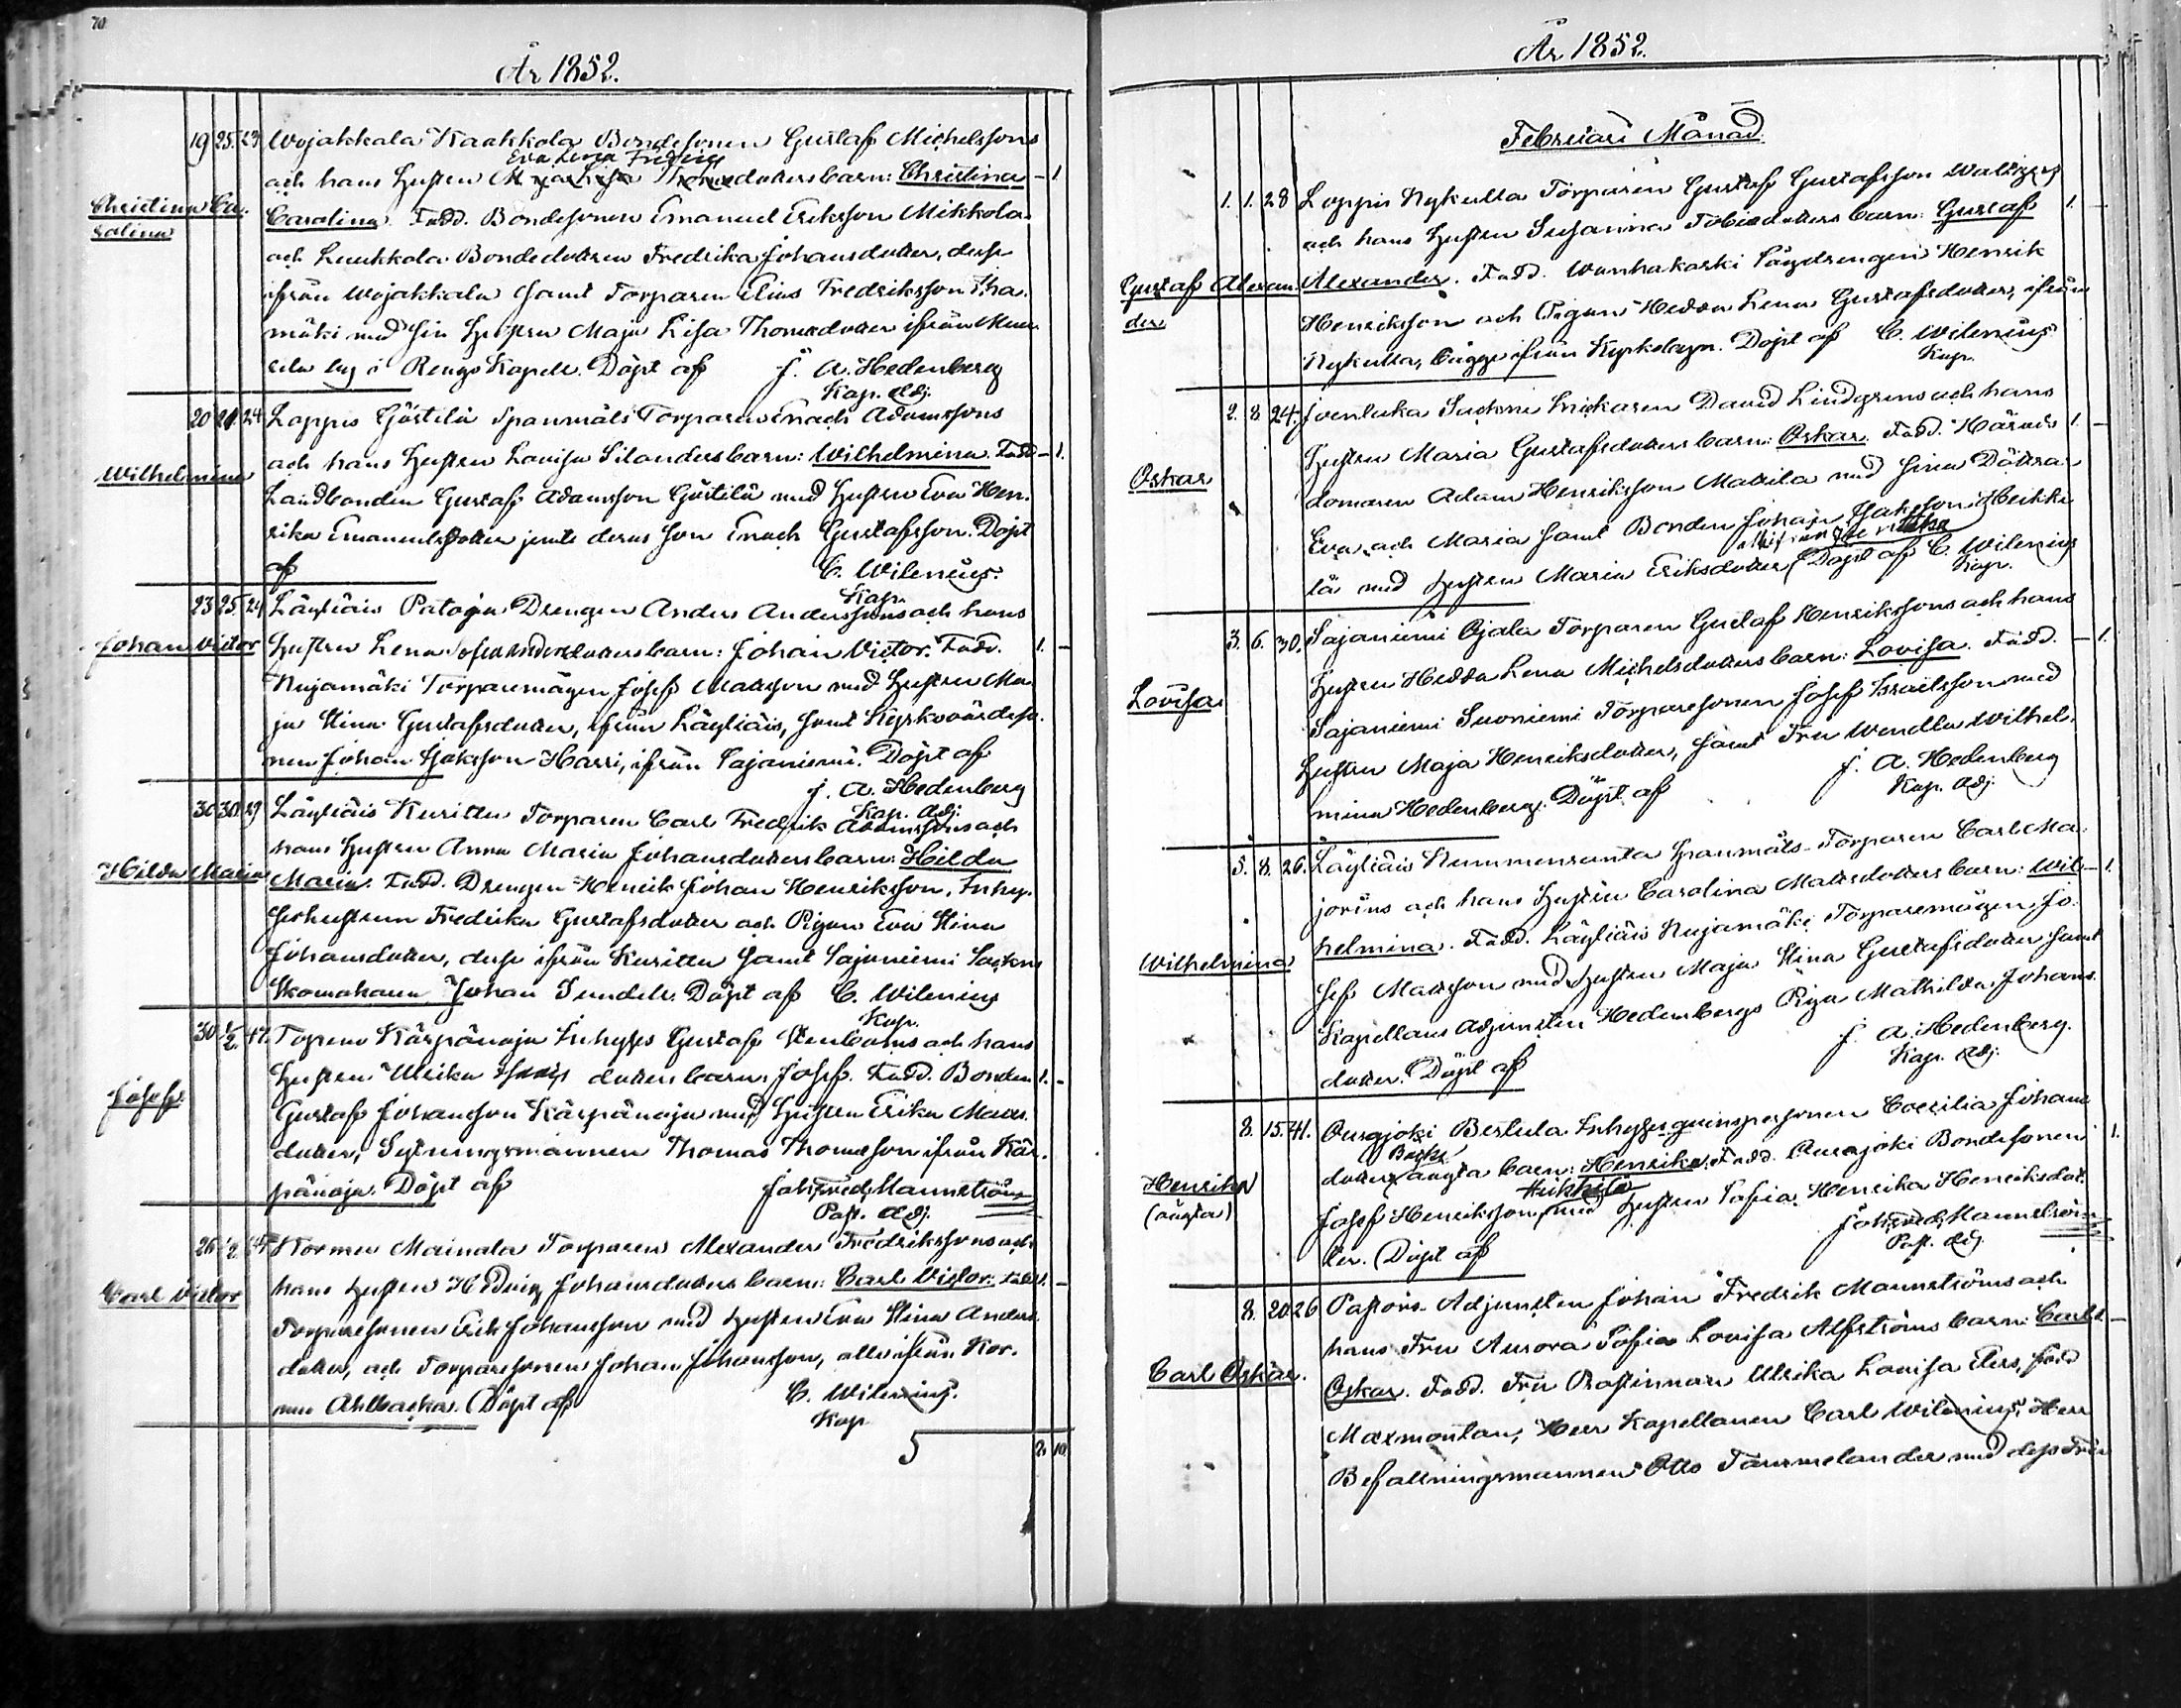 70
År 1852.
19 25. 23 Wojakkala Kaakkola Bondesonen Gustaf Michelssons
Eva Lena Fredrics
och hans Hustru Maja Lisa Thomædotters barn: Christina – 1
Christina Ca-
rolina
Carolina. Fadd. Bondesonen Emanuel Eriksson Mikkola
och Luukkola Bondedottren Fredrika Johansdotter, desse
ifrån Wojakkala samt Torparen Elias Fredriksson
mäki med sin Hustru Maja Lisa Thomædotter ifrån
by i Rengo Kapell. Döpt af J. A. Hedenberg
Kap. Adj.
20 21. 24 Loppis Göstilä Spanmåls Torparen Enoch Adamssons
Wilhelmina
och hans Hustru Lovisa Silanders barn: Wilhelmina. Fadd – 1.
Landbonden Gustaf Adamsson Göstilä med Hustru Eva Hen-
rika Emanuelsdotter jemte deras Son Enoch Gustafsson. Döpt
af C. Wilenius.
Kap.
23 25. 24 Läyliäis Patoja Drengen Anders Anderssons och hans
Johan Victor Hustru Lena Sofia Andersdotters barn: Johan Victor. Fadd. 1. –
Nujamäki Torparemågen Josef Mattsson med Hustru Ma-
ja Stina Gustafsdotter, ifrån Läyliäis, samt Kyrkovärdeso-
nen Johan Isaksson Harri, ifrån Sajaniemi. Döpt af
J. A. Hedenberg
Kap. Adj.
30 30. 29 Läyliäis Kuritto Torparen Carl Fredrik Adamssons och
hans Hustru Anna Maria Johansdotters barn: Hilda
Hilda Maria Maria. Fadd. Drengen Henrik Johan Henriksson, Inhy-
seshustrun Fredrika Gustafsdotter och Pigan Eva Stina
Johansdotter, desse ifrån Kuritto samt Sajaniemi Sockne
Skomakaren Johan Sundell. Döpt af C. Wilenius
Kap.
30 1/2. 47. Topeno Kärpänoja Inhyses Gustaf Stenboms och hans
Hustru Ulrika dotters barn: Josef. Fadd. Bonden 1. –
Josef
Gustaf Johansson Kärpänoja med Hustru Erika Matts-
dotter, Sytningsmannen Thomas Thomasson ifrån Kär-
pänoja. Döpt af Joh. Fred. Mannström
Past. Adj.
26 1/2. Kormu Mainala Torparens Alexander Fredrikssons och
Carl Victor
hans Hustru Hedvig Johansdotters barn: Carl Victor. Fadd 1. –
Torparesonen Erik Johansson med Hustru Eva Stina Anders-
dotter, och Torparesonen Johan Johansson, alla ifrån Kor-
mu Ahlbacka. Döpt af C. Wilenius.
Kap.
2. 10.
År 1852.
Februari Månad.
1. 1. 28 Loppis Nykulla Torparen Gustaf Gustafsson
och hans Hustru Susanna Tobiædotters barn: Gustaf 1. –
Gustaf Alexan-
der
Alexander. Fadd. Wanhakoski Lägdrengen Henrik
Henriksson och Pigan Hedda Lena Gustafsdotter, ifrån
Nykulla, bägge ifrån Kyrkobyn. Döpt af C. Wilenius
Kap.
2. 8. 24. Joentaka Sockne Snickaren David Lindgrens och hans
Hustru Maria Gustafsdotters barn: Oskar. Fadd. Härads- 1. –
Oskar
domaren Adam Henriksson Mattila med sina Döttrar
Eva och Maria samt Bonden Johan Isaksson Heikki-
alla ifrån Joentaka
lä med Hustru Maria Eriksdotter. Döpt af C. Wilenius
Kap.
3. 6. 30. Sajaniemi Ojala Torparen Gustaf Henrikssons och hans
Hustru Hedda Lena Michelsdotters barn: Lovisa. Fadd. – 1.
Lovisa
Sajaniemi Suoniemi Torparesonen Josef Israelsson med
Hustru Maja Henriksdotter, samt Fru Wendla Wilhel-
mina Hedenberg. Döpt af J. A. Hedenberg
Kap. Adj.
5. 8. 26. Läyliäis Nummenranta Spanmåls-Torparen Carl Ma-
jorins och hans Hustru Carolina Mattsdotters barn: Wil- – 1.
Wilhelmina
helmina. Fadd. Läyliäis Nujamäki Torparemågen Jo-
sef Mattsson med Hustru Maja Stina Gustafsdotter samt
Kapellans Adjuncten Hedenbergs Piga Mathilda Johans-
dotter. Döpt af J. A. Hedenberg.
Kap. Adj.
8. 15. 41. Ourajoki Bertula Inhysesqvinspersonen Coecilia Johans-
dotters oägta barn: Henrika. Fadd. Ourajoki Bondesonen 1.
Henrika
(oägta)
Josef Henriksson med Hustru Sofia Henrika Henriksdot-
ter. Döpt af Joh. Fred. Mannström
Past. Adj.
8. 20 26 Pastors-Adjuncten Johan Fredrik Mannströms och
hans Fru Aurora Sofia Lovisa Alfströms barn: Carl 1. –
Carl Oskar.
Oskar. Fadd. Fru Prostinnan Ulrika Lovisa Elers, född
Maxmontan, Herr Kapellanen Carl Wilenius, Herr
Befallningsmannen Otto Tammelander med dess Fru